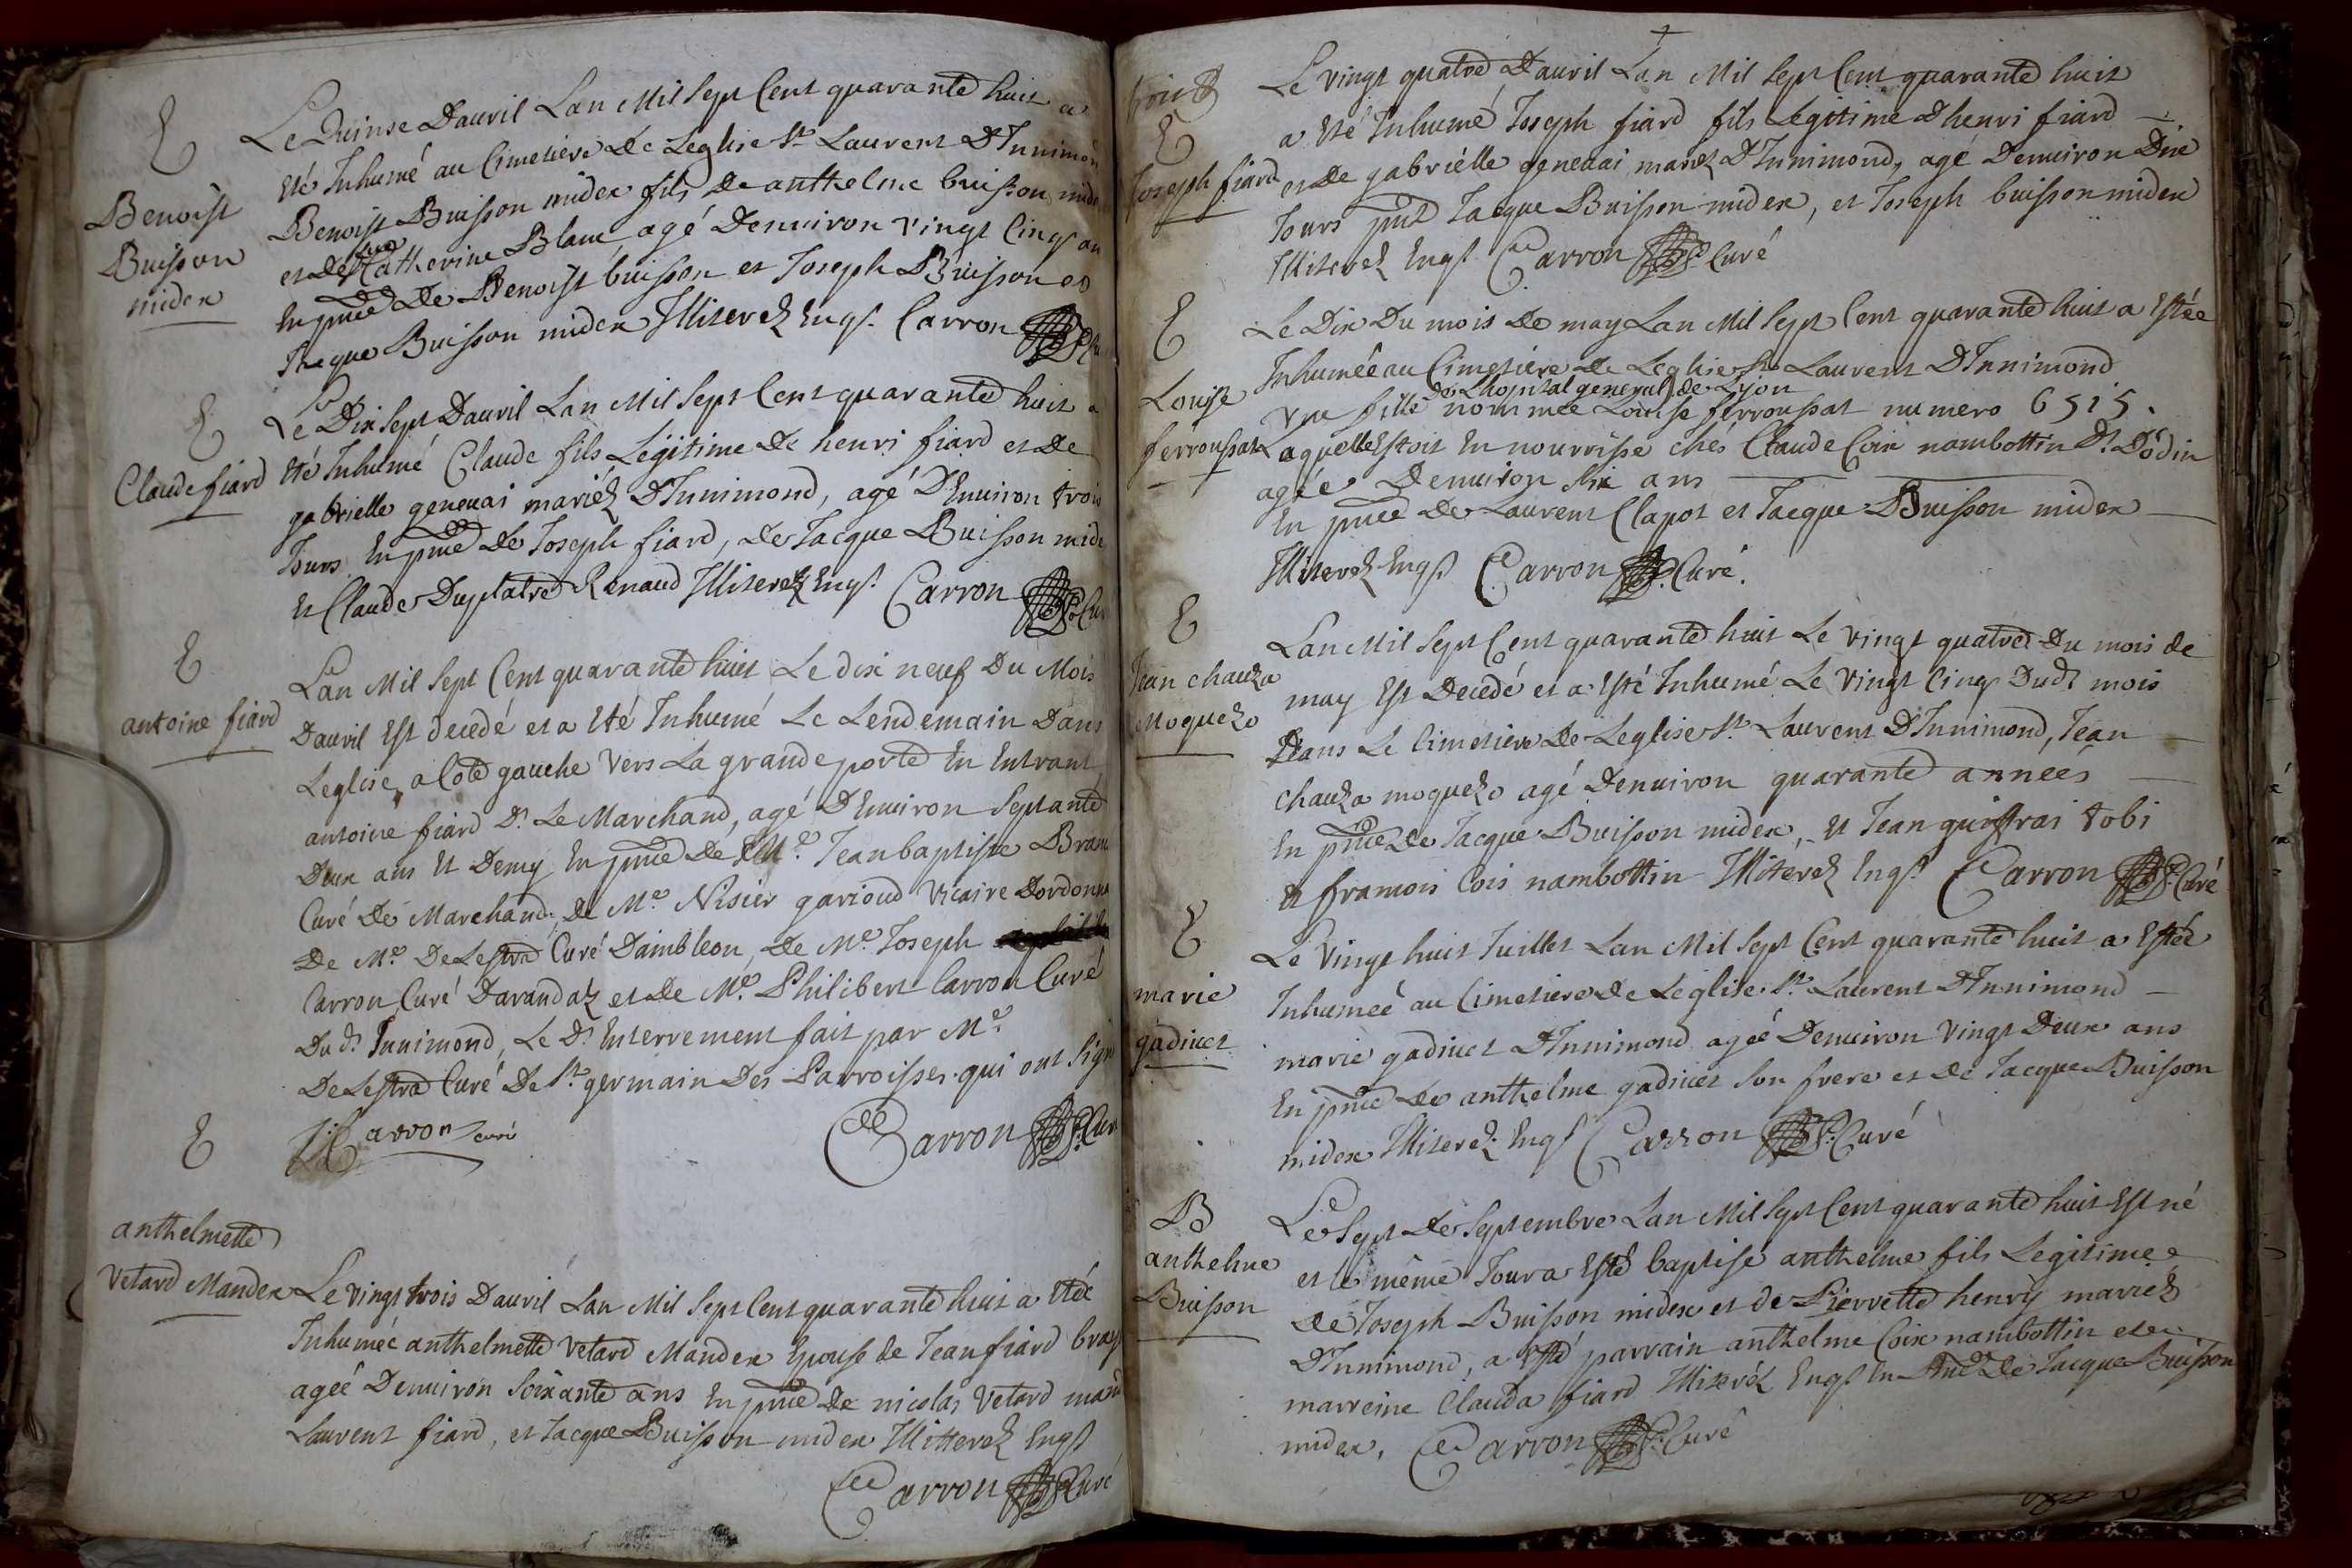 E
Benoist
Buisson
midex
Le Quinse Dauril Lan Mil Sept Cent quarante huit a
Eté Inhumé au Cimetiere de Leglise St Laurent D'Innimon
Benoist Buisson midex fils De anthelme buisson mide
et de Catherine Blanc agé Denuiron vingt Cinq an
En pnce De Benoist buisson et Joseph Buisson et
Jacque Buisson midex Illiterez Enqs. Carron
E
Claude fiard
Le Dix Sept Dauril Lan Mil Sept Cent quarante huit a
Eté Inhumé Claude fils Légitime De henri fiard et De
gabrielle geneuai mariéz D'Innimond, agé D'Enuiron trois
Jours En pnce De Joseph fiard, de Jacque Buisson mide
Et Claude Duplatre Renaud Illiterez Enqs. Carron Cu
E
antoine fiard
Lan Mil Sept Cent quarante huit Le dix neuf Du Mois
Dauril Est decedé et a Eté Inhumé Le Lendemain Dans
Leglise, a Coté gauche Vers La grande porte En Entrant
antoine fiard Dt Le Marchand, agé D'Enuiron Septante
Deux ans Et Demy En pnce De Me Jean baptiste Bran
Curé De Marchand, de Me Nisier garioud Vicaire Dordonna
De Me DeLestra Curé Dambleon, de Me Joseph
Carron Curé Darandaz et de Me Philibert Carron Curé
Dud. Innimond, Le Dt Enterrement fait par Me
DeLestra Curé De St germain Des Parroisses qui ont Sign
Carron curé
Carron Cur
E
anthelmette
Vetard Mandex
Le Vingt trois Dauril Lan Mil Sept Cent quarante huit a Etée
Inhumée anthelmette Vetard Mandex Epouse de Jean fiard
ageé Denuiron Soixante ans En pnce De nicolas Vetard mand
Laurent fiard, et Jacque Buisson midex Illitterez Enqs
Carron Curé
E
Joseph fiard
Le Vingt quatre Dauril Lan Mil Sept Cent quarante huit
a Eté Inhumé Joseph fiard fils Légitime D'henri fiard
et De gabriélle geneuai mariez D'Innimond, agé Denuiron Dix
Jours pnt Jacque Buisson midex, et Joseph buisson midex
Illiterez Enqs. Carron Curé
E
Louise
ferroussat
Le Dix Du mois De may Lan Mil Sept Cent quarante huit a Estée
Inhumée au Cimetiere de Leglise St Laurent D'Innimond
de Lhopital general de Lyon
Vne fille nommée Louise ferroussat numero 6515.
Laquelle Estoit En nourrisse chés Claude Coix nambottin Dt Dodin
agée Denuiron Six ans
En pnce De Laurent Clapot et Jacque Buisson midex
Illiterez Enqs Carron Curé.
E
Jean chauza
Moquezo
Lan Mil Sept Cent quarante huit Le Vingt quatre Du mois de
may Est Decedé et a Esté Inhumé Le Vingt Cinq Dudt mois
Dans Le Cimetiere De Leglise St Laurent D'Innimond, Jean
chauza moquezo agé Denuiron quarante années
En pnce De Jacque Buisson midex, Et Jean guiffrai tobi
Et francois Cois nambottin Illiterez Enqs. Carron Curé
E
marie
gadiuet
Le Vingt huit Juillet Lan Mil Sept Cent quarante huit a Estée
Inhumeé au Cimetiere De Leglise St Laurent D'Innimond
marie gadiuet D'Innimond ageé Denuiron Vingt Deux ans
En pnce De anthelme gadiuet Son frere et De Jacque Buisson
midex Illiterez Enqs Carron Curé
B
anthelme
Buisson
Le Sept De Septembre Lan Mil Sept Cent quarante huit Est né
et le même Jour a Esté baptisé anthelme fils Légitime
De Joseph Buisson midex et de Pierrette henry mariez
D'Innimond, a Esté parrain anthelme Coix nambottin et
marreine Clauda fiard Illiteréz Enqs En pnce De Jacque Buisson
midex. Carron Curé